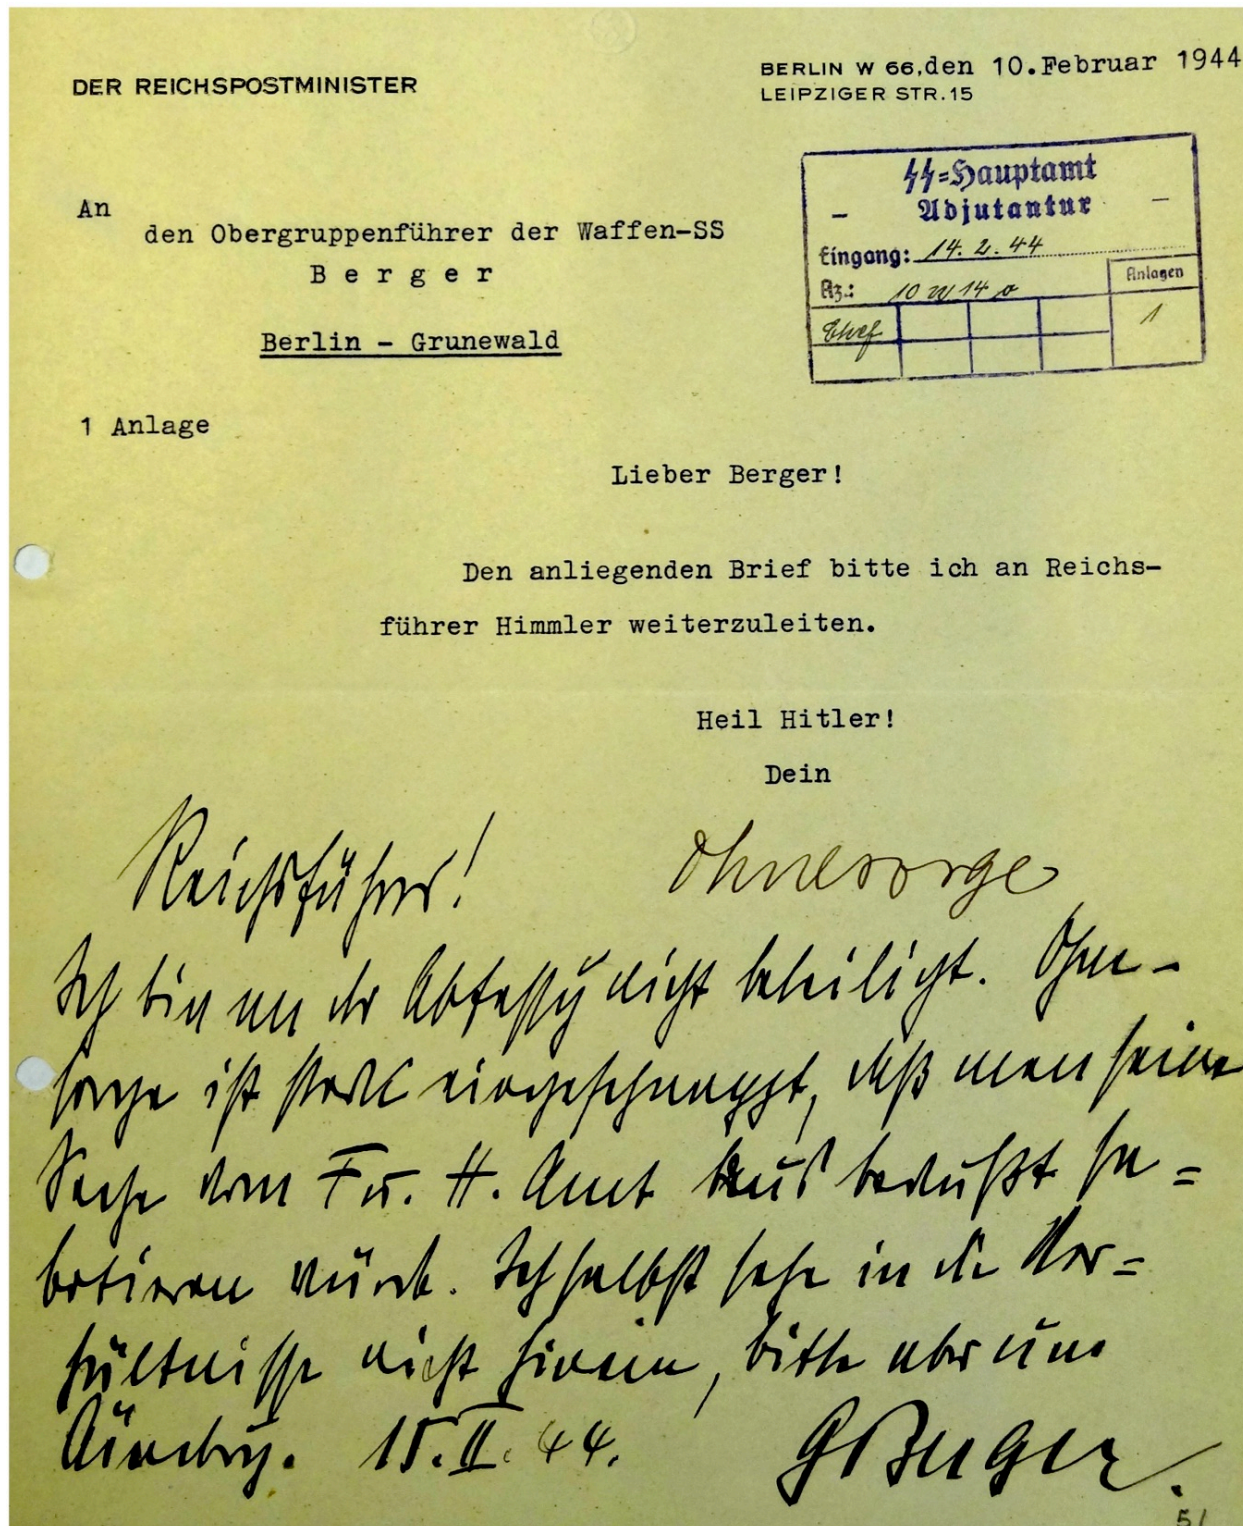 DER REICHSPOSTMINISTER
BERLIN W 66, den 10. Februar 1944
LEIPZIGER STR. 15
ϟϟ=Hauptamt
– Adjutantur –
Eingang: 14. 2. 44
Az.: 10 14
Anlagen
Chef
1
An
den Obergruppenführer der Waffen-SS
B e r g e r
Berlin - Grunewald
1 Anlage
Lieber Berger!
Den anliegenden Brief bitte ich an Reichs-
führer Himmler weiterzuleiten.
Heil Hitler!
Dein
Ohnesorge
Reichsführer!
Ich bin an der Abfassg nicht beteiligt. Ohne-
sorge ist stark eingeschnappt, daß man seine
Sache vom Fü. H. Amt aus bewußt sa=
botieren würde. Ich selbst sehe in die Ver=
hältnisse nicht hinein, bitte aber um
15. II. 44.
GBerger.
51